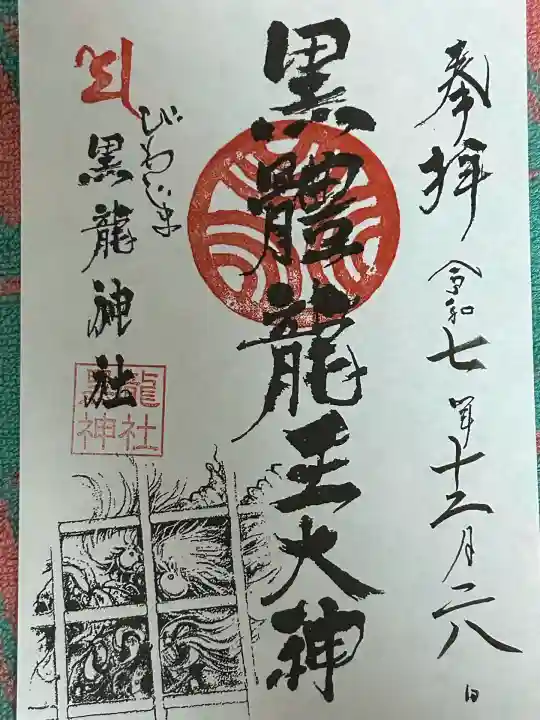 奉拝
令和七年十二月二八日
黒體龍王大神
びわじま
黒龍神社
黒龍
神社